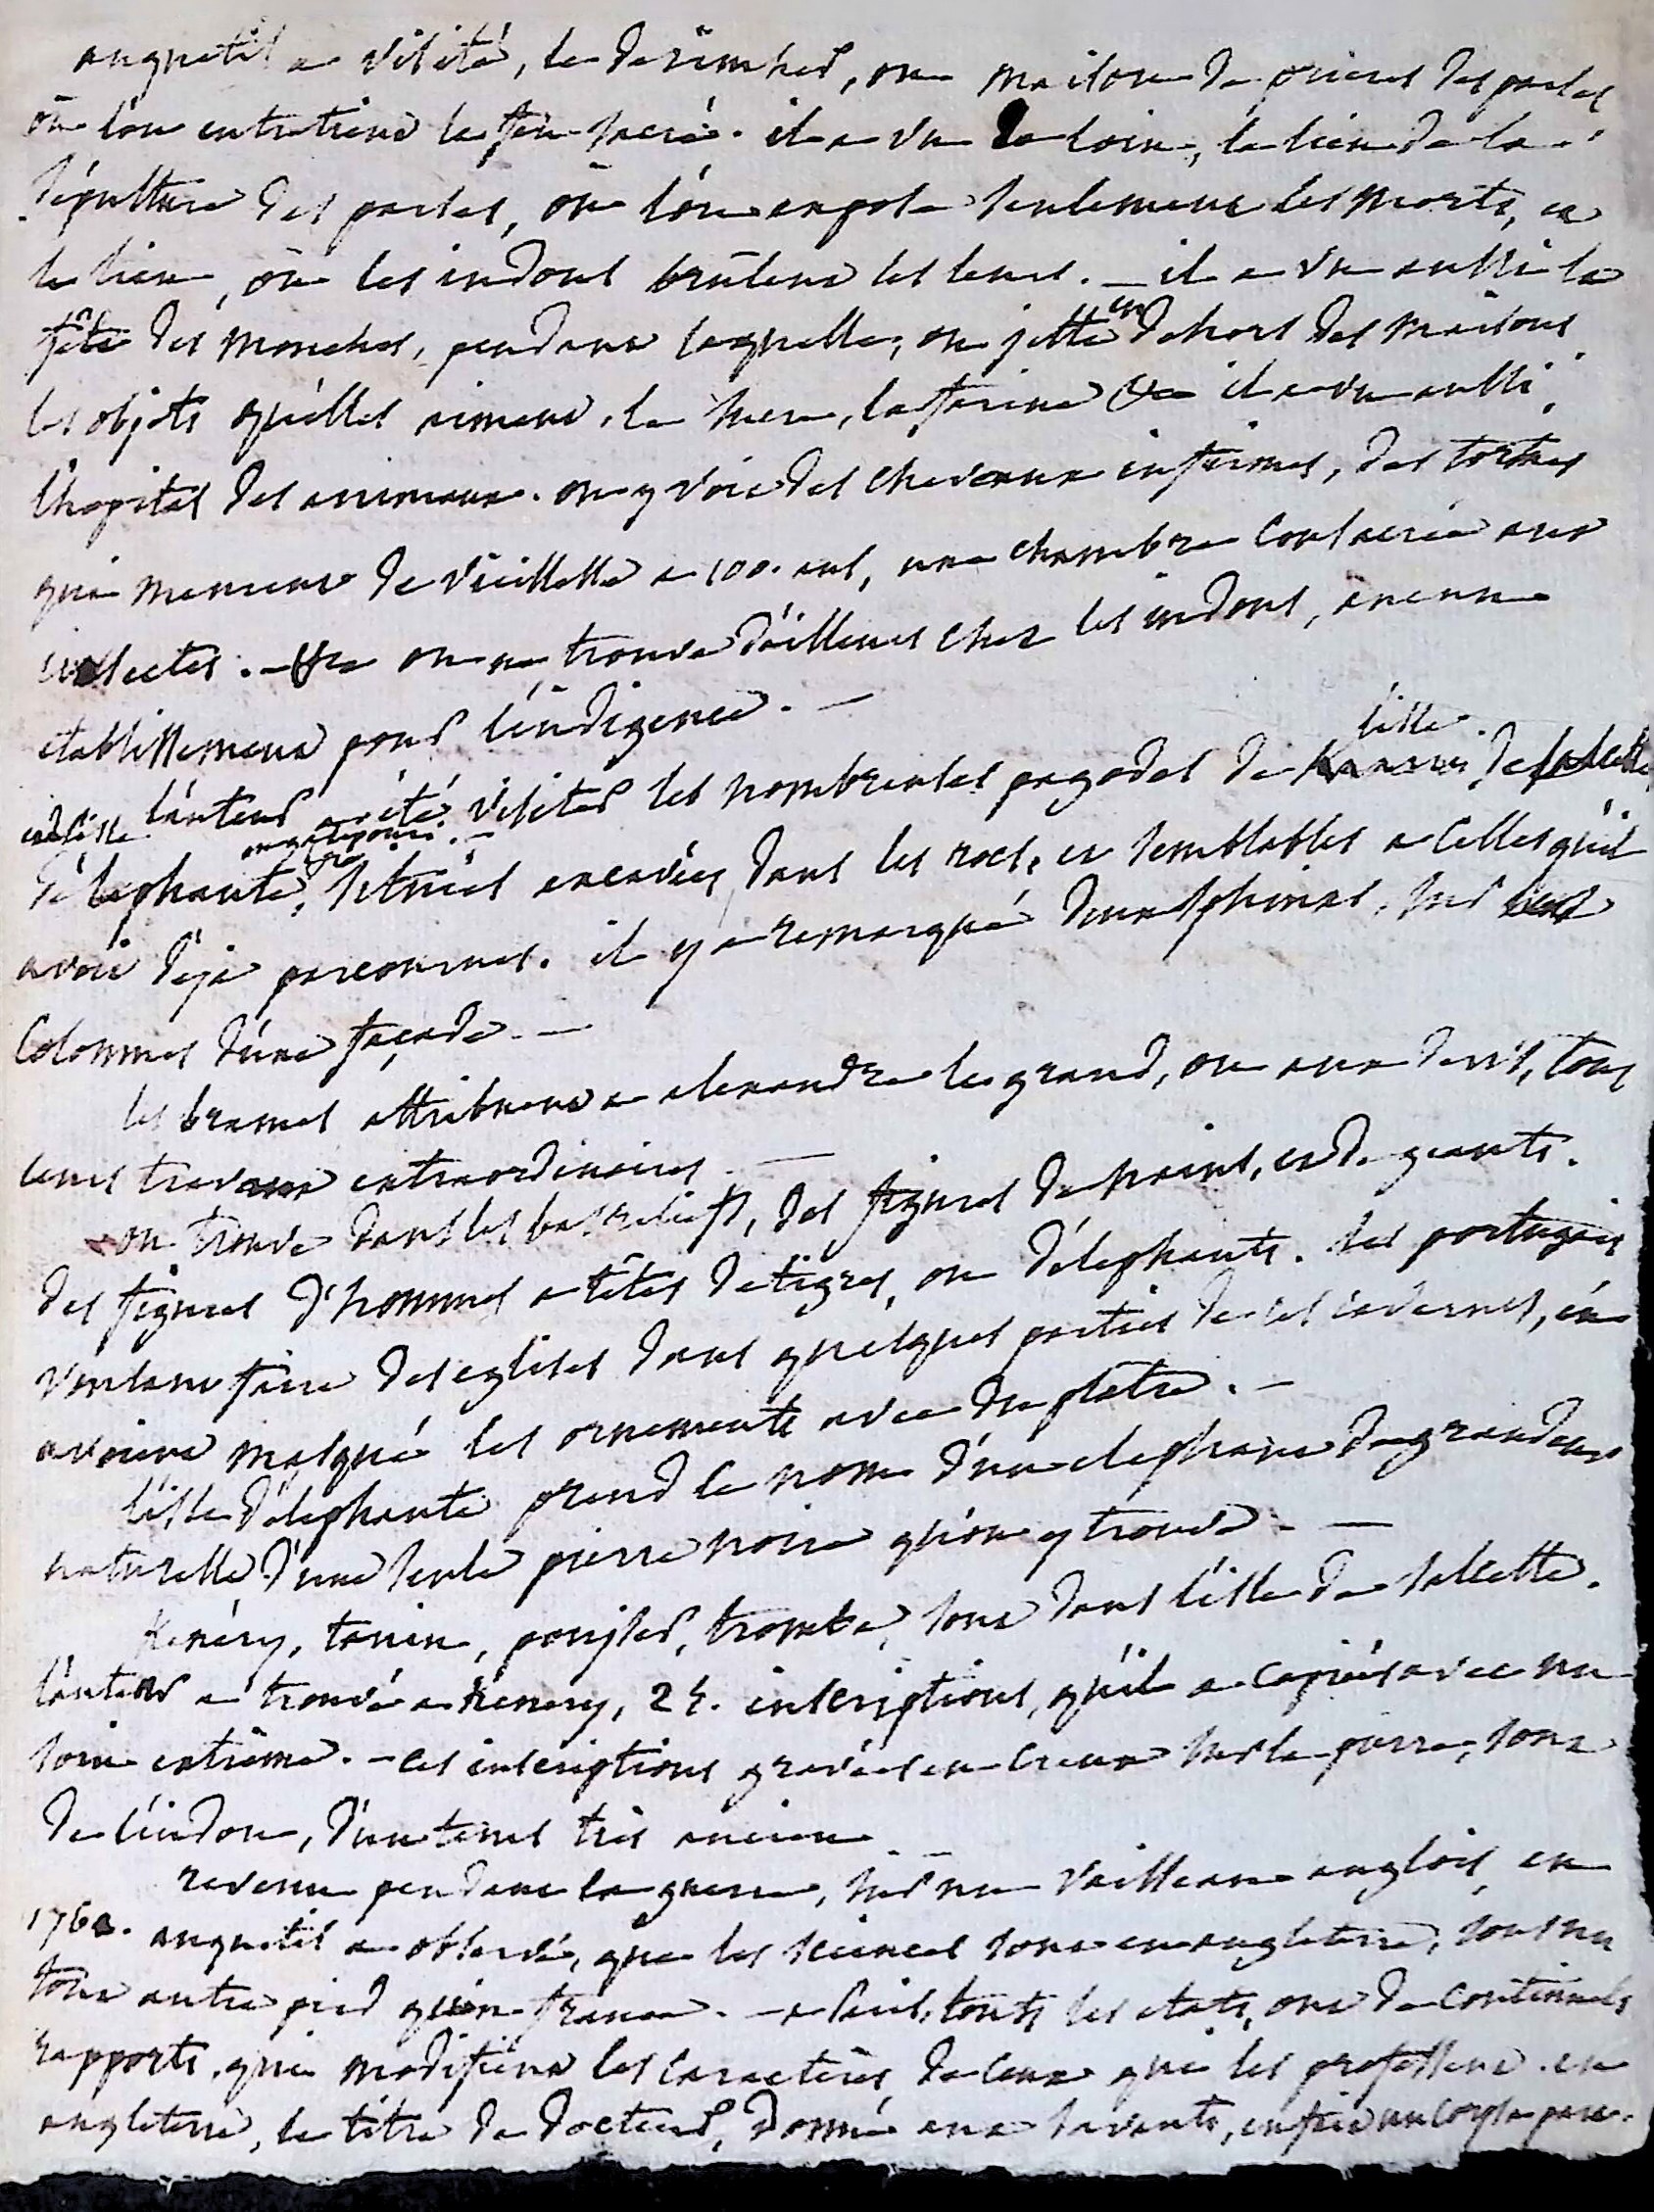 anquetil a visité, le derimher, ou maison de prieres des parses
où l'on entretient le feu sacré. il a vu de loin, le lieu de la
sépulture des parses, où l'on expose seulement les morts, et
le lieu, où les indous brûlent les leurs. — il a vu aussi la
fête des mouches, pendant laquelle, on jette en dehors des maisons
les objets qu'elles aiment, le sucre, la farine &c il a vu aussi,
l'hopital des animaux. on y voit des chevaux infirmes, des tortues
qui meurent de vieillesse a 100. ans, une chambre consacrée aux
insectes. — &c on ne trouve d'ailleurs chez les indous, aucun
etablissement pour l'indigence. —
l'auteur a été visiter les nombreuses pagodes de l'isle de salcette
et de l'isle d'elephante, situées excavées dans les rocs, et semblables a celles qu'il
avoit déja parcourues. il y a remarqué deux sphinx, sur les
colonnes d'une façade. —
les brames attribuent a alexandre le grand, ou aux dews, tous
leurs travaux extraordinaires. —
on trouve dans les bas reliefs, des figures de nains, et de geants.
des figures d'hommes a têtes de tigres, ou d'elephants. les portugais
voulant faire des eglises dans quelques parties de ces cavernes, en
avoient masqué les ornements avec du platre. —
l'isle d'elephante prend le nom d'un elephant de grandeur
naturelle d'une seule pierre noire qu'on y trouve. —
Kenéry, tanin, ponjser, trombe, sont dans l'isle de salcette.
l'auteur a trouvé a Kenery, 24. inscriptions, qu'il a copiées avec un
soin extrême. — ces inscriptions gravées en creux sur la pierre, sont
de l'indou, d'un tems très ancien
revenu pendant la guerre, sur un vaisseau anglois, en
1762. anquetil a observé, que les sciences sont en angleterre, sous un
tout autre pied qu'en france. — a paris, touts les etats, ont de continuels
rapports, qui modifient les caractères de ceux qui les professent. en
angleterre, le titre de docteur, donné aux savants, en fait un corps a part.